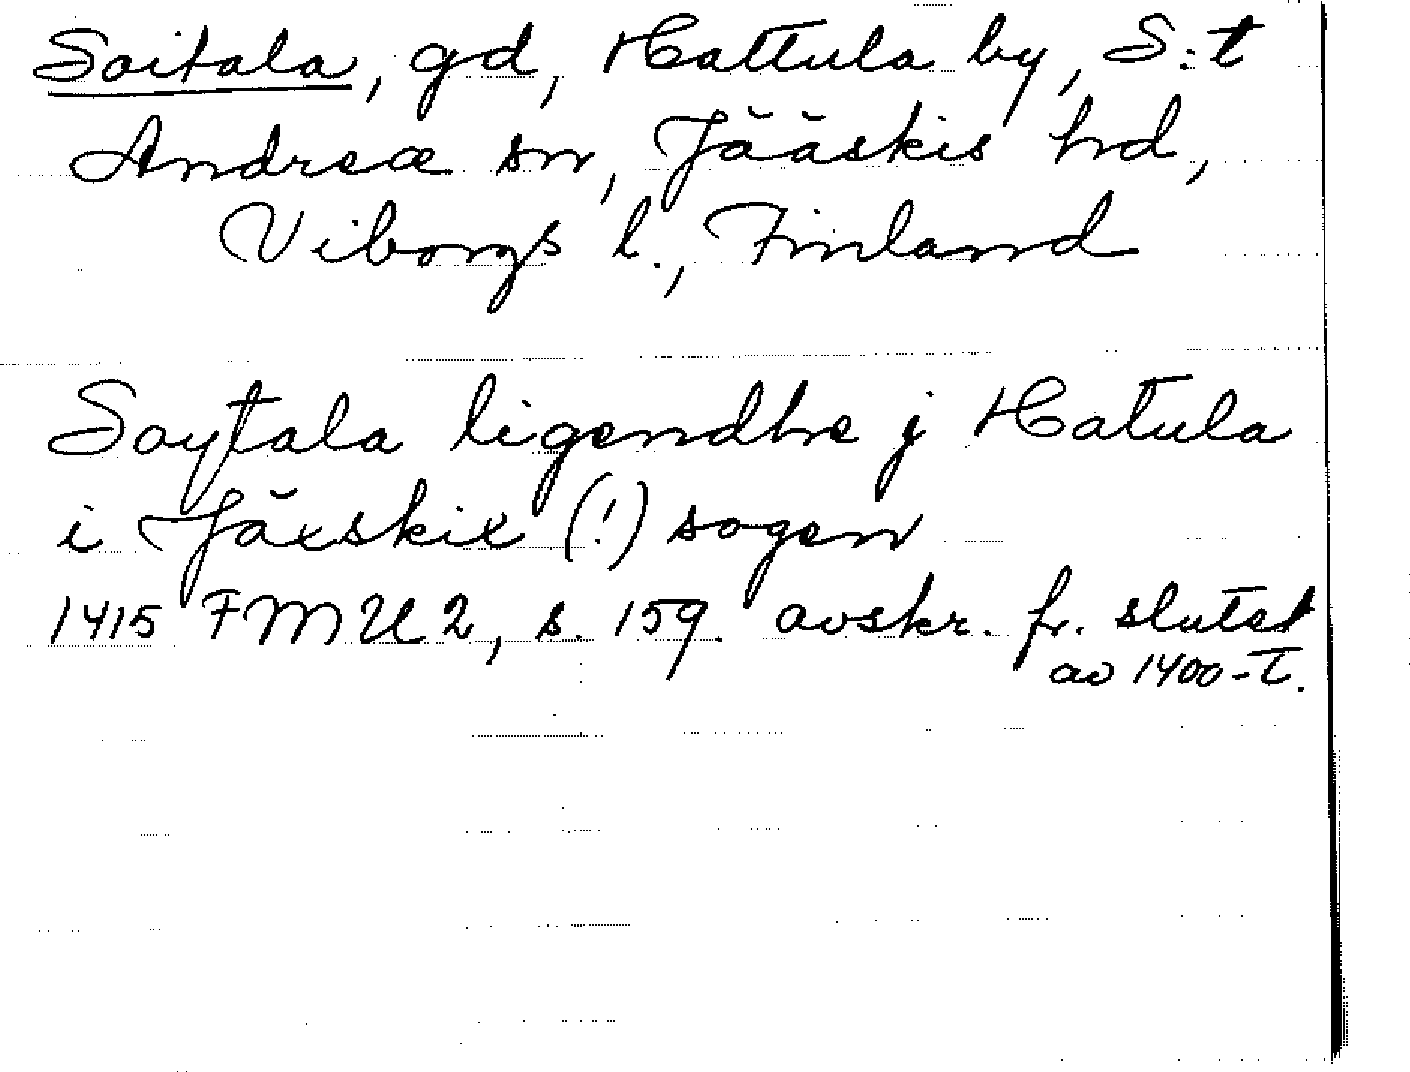 Soitala, gd, Hattula by, S:t
Andreæ sn, Jääskis hd,
Viborgs l., Finland
Soytala ligendhe j Hatula
i Jäxskix (!) sogen
1415 FMU 2, s. 159. avskr. fr. slutet
av 1400-t.